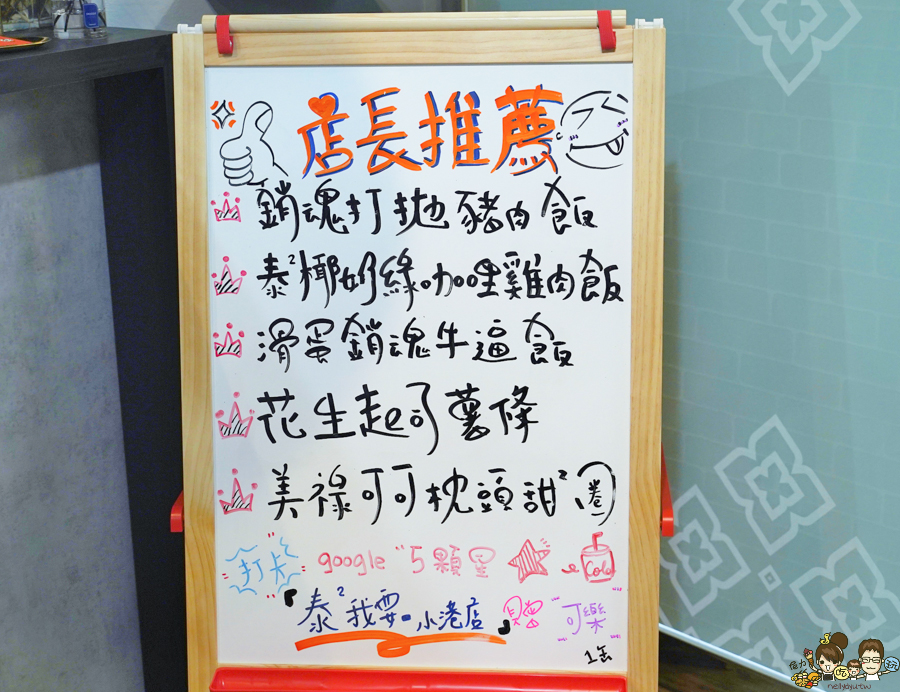 店長推薦
銷魂打拋豬肉飯
泰²椰奶綠咖哩雞肉飯
滑蛋銷魂牛逼飯
花生起司薯條
美祿可可枕頭甜²圈
打卡 google "5顆星 Cola
『泰²我要-小港店』贈"可樂"
1缶
nellydyu.tw